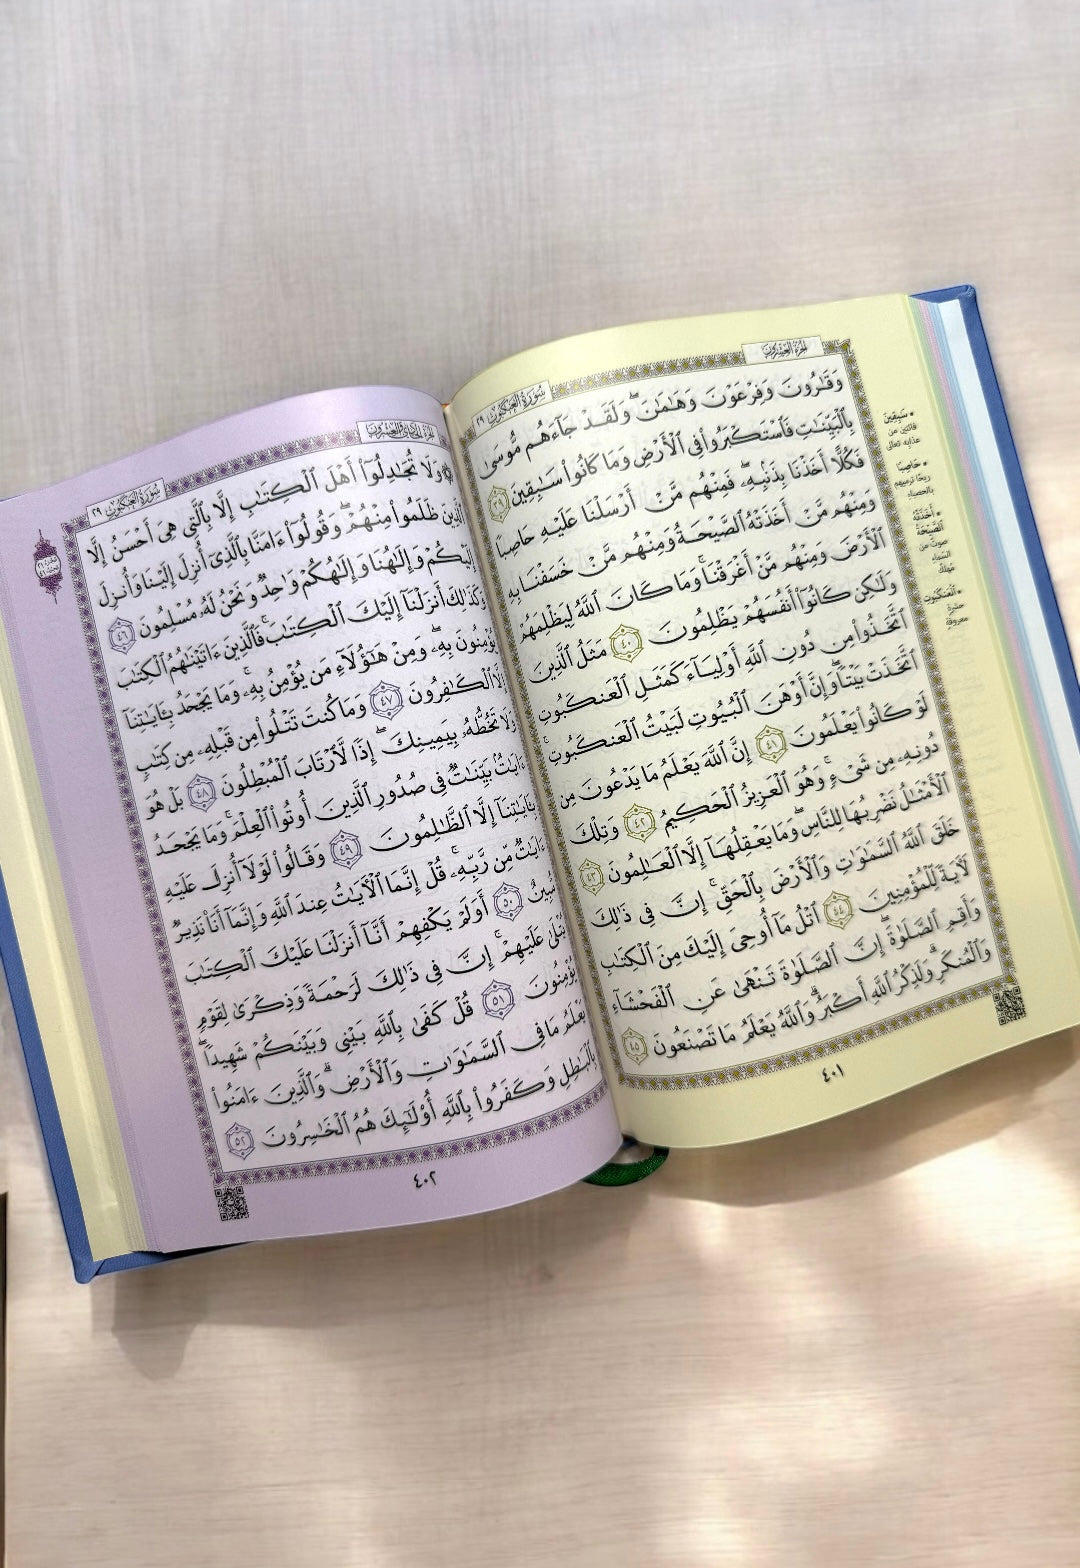 الجزء العشرون
سورة العنكبوت ٢٩
وَقَٰرُونَ وَفِرْعَوْنَ وَهَٰمَٰنَۖ وَلَقَدْ جَآءَهُم مُّوسَىٰ
بِٱلْبَيِّنَٰتِ فَٱسْتَكْبَرُوا۟ فِى ٱلْأَرْضِ وَمَا كَانُوا۟ سَٰبِقِينَ ٣٩
فَكُلًّا أَخَذْنَا بِذَنۢبِهِۦۖ فَمِنْهُم مَّنْ أَرْسَلْنَا عَلَيْهِ حَاصِبًا
وَمِنْهُم مَّنْ أَخَذَتْهُ ٱلصَّيْحَةُ وَمِنْهُم مَّنْ خَسَفْنَا بِهِ
ٱلْأَرْضَ وَمِنْهُم مَّنْ أَغْرَقْنَاۚ وَمَا كَانَ ٱللَّهُ لِيَظْلِمَهُمْ
وَلَٰكِن كَانُوٓا۟ أَنفُسَهُمْ يَظْلِمُونَ ٤٠ مَثَلُ ٱلَّذِينَ
ٱتَّخَذُوا۟ مِن دُونِ ٱللَّهِ أَوْلِيَآءَ كَمَثَلِ ٱلْعَنكَبُوتِ
ٱتَّخَذَتْ بَيْتًاۖ وَإِنَّ أَوْهَنَ ٱلْبُيُوتِ لَبَيْتُ ٱلْعَنكَبُوتِۚ
لَوْ كَانُوا۟ يَعْلَمُونَ ٤١ إِنَّ ٱللَّهَ يَعْلَمُ مَا يَدْعُونَ مِن
دُونِهِۦ مِن شَىْءٍۚ وَهُوَ ٱلْعَزِيزُ ٱلْحَكِيمُ ٤٢ وَتِلْكَ
ٱلْأَمْثَٰلُ نَضْرِبُهَا لِلنَّاسِۖ وَمَا يَعْقِلُهَآ إِلَّا ٱلْعَٰلِمُونَ ٤٣
خَلَقَ ٱللَّهُ ٱلسَّمَٰوَٰتِ وَٱلْأَرْضَ بِٱلْحَقِّۚ إِنَّ فِى ذَٰلِكَ
لَءَايَةً لِّلْمُؤْمِنِينَ ٤٤ ٱتْلُ مَآ أُوحِىَ إِلَيْكَ مِنَ ٱلْكِتَٰبِ
وَأَقِمِ ٱلصَّلَوٰةَۖ إِنَّ ٱلصَّلَوٰةَ تَنْهَىٰ عَنِ ٱلْفَحْشَآءِ
وَٱلْمُنكَرِۗ وَلَذِكْرُ ٱللَّهِ أَكْبَرُۗ وَٱللَّهُ يَعْلَمُ مَا تَصْنَعُونَ ٤٥
٤٠١
• سابقين
فائتين من
عذابه تعالى
• حاصبا
ريحا ترميهم
بالحصباء
• أخذته الصيحة
صوت من
السماء
مهلك
• العنكبوت
حشرة
معروفة
الجزء الحادي والعشرون
سورة العنكبوت ٢٩
۞ وَلَا تُجَٰدِلُوٓا۟ أَهْلَ ٱلْكِتَٰبِ إِلَّا بِٱلَّتِى هِىَ أَحْسَنُ إِلَّا
ٱلَّذِينَ ظَلَمُوا۟ مِنْهُمْۖ وَقُولُوٓا۟ ءَامَنَّا بِٱلَّذِىٓ أُنزِلَ إِلَيْنَا وَأُنزِلَ
إِلَيْكُمْ وَإِلَٰهُنَا وَإِلَٰهُكُمْ وَٰحِدٌ وَنَحْنُ لَهُۥ مُسْلِمُونَ ٤٦
وَكَذَٰلِكَ أَنزَلْنَآ إِلَيْكَ ٱلْكِتَٰبَۚ فَٱلَّذِينَ ءَاتَيْنَٰهُمُ ٱلْكِتَٰبَ
يُؤْمِنُونَ بِهِۦۖ وَمِنْ هَٰٓؤُلَآءِ مَن يُؤْمِنُ بِهِۦۚ وَمَا يَجْحَدُ بِـَٔايَٰتِنَآ
إِلَّا ٱلْكَٰفِرُونَ ٤٧ وَمَا كُنتَ تَتْلُوا۟ مِن قَبْلِهِۦ مِن كِتَٰبٍ
وَلَا تَخُطُّهُۥ بِيَمِينِكَۖ إِذًا لَّٱرْتَابَ ٱلْمُبْطِلُونَ ٤٨ بَلْ هُوَ
ءَايَٰتٌۢ بَيِّنَٰتٌ فِى صُدُورِ ٱلَّذِينَ أُوتُوا۟ ٱلْعِلْمَۚ وَمَا يَجْحَدُ
بِـَٔايَٰتِنَآ إِلَّا ٱلظَّٰلِمُونَ ٤٩ وَقَالُوا۟ لَوْلَآ أُنزِلَ عَلَيْهِ
ءَايَٰتٌ مِّن رَّبِّهِۦۖ قُلْ إِنَّمَا ٱلْءَايَٰتُ عِندَ ٱللَّهِ وَإِنَّمَآ أَنَا۠ نَذِيرٌ
مُّبِينٌ ٥٠ أَوَلَمْ يَكْفِهِمْ أَنَّآ أَنزَلْنَا عَلَيْكَ ٱلْكِتَٰبَ
يُتْلَىٰ عَلَيْهِمْۚ إِنَّ فِى ذَٰلِكَ لَرَحْمَةً وَذِكْرَىٰ لِقَوْمٍ
يُؤْمِنُونَ ٥١ قُلْ كَفَىٰ بِٱللَّهِ بَيْنِى وَبَيْنَكُمْ شَهِيدًاۖ
يَعْلَمُ مَا فِى ٱلسَّمَٰوَٰتِ وَٱلْأَرْضِۗ وَٱلَّذِينَ ءَامَنُوا۟
بِٱلْبَٰطِلِ وَكَفَرُوا۟ بِٱللَّهِ أُو۟لَٰٓئِكَ هُمُ ٱلْخَٰسِرُونَ ٥٢
٤٠٢